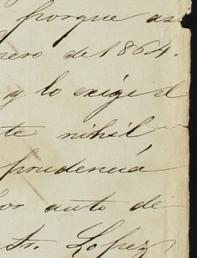 porque as
nero de 1864.
y lo exige el
te nihil
prudencia
por auto de
Sr. Lopez